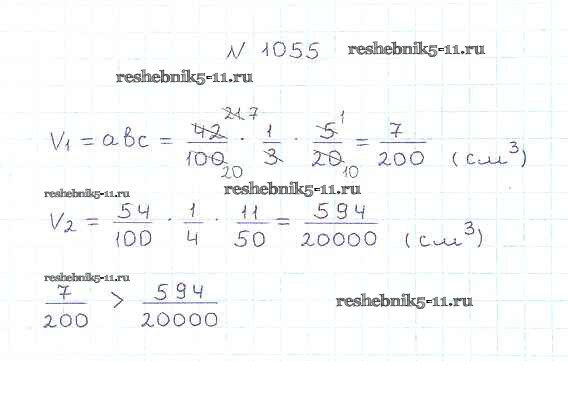 N 1055 reshebnik5-11.ru
reshebnik5-11.ru
21 7 1
V1 = abc = 42/100 · 1/3 · 5/20 = 7/200 (см³)
20 10
reshebnik5-11.ru reshebnik5-11.ru
V2 = 54/100 · 1/4 · 11/50 = 594/20000 (см³)
reshebnik5-11.ru
7/200 > 594/20000
reshebnik5-11.ru